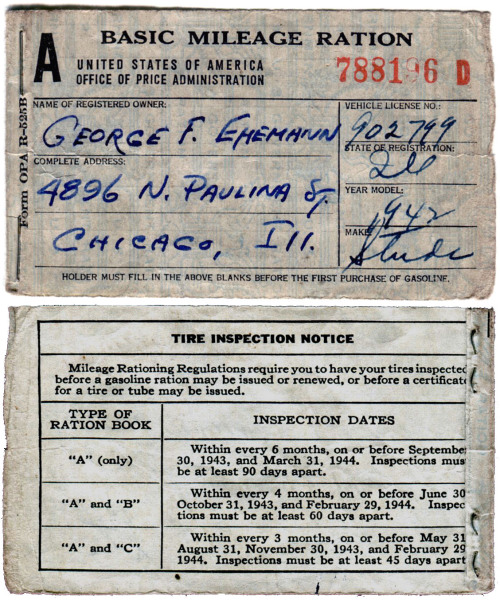 A
BASIC MILEAGE RATION
UNITED STATES OF AMERICA
OFFICE OF PRICE ADMINISTRATION
7881 6 D
Form OPA R-525B
NAME OF REGISTERED OWNER:
GEORGE F. EHEMANN
COMPLETE ADDRESS:
4896 N. PAULINA St.
CHICAGO, Ill.
VEHICLE LICENSE NO.:
902799
STATE OF REGISTRATION:
Ill
YEAR MODEL:
1942
MAKE:
Stude
HOLDER MUST FILL IN THE ABOVE BLANKS BEFORE THE FIRST PURCHASE OF GASOLINE.
TIRE INSPECTION NOTICE
Mileage Rationing Regulations require you to have your tires inspected
before a gasoline ration may be issued or renewed, or before a certificate
for a tire or tube may be issued.
TYPE OF
RATION BOOK
INSPECTION DATES
"A" (only)
Within every 6 months, on or before Septembe
30, 1943, and March 31, 1944. Inspections mus
be at least 90 days apart.
"A" and "B"
Within every 4 months, on or before June 30
October 31, 1943, and February 29, 1944. Inspec
tions must be at least 60 days apart.
"A" and "C"
Within every 3 months, on or before May 31
August 31, November 30, 1943, and February 29
1944. Inspections must be at least 45 days apart